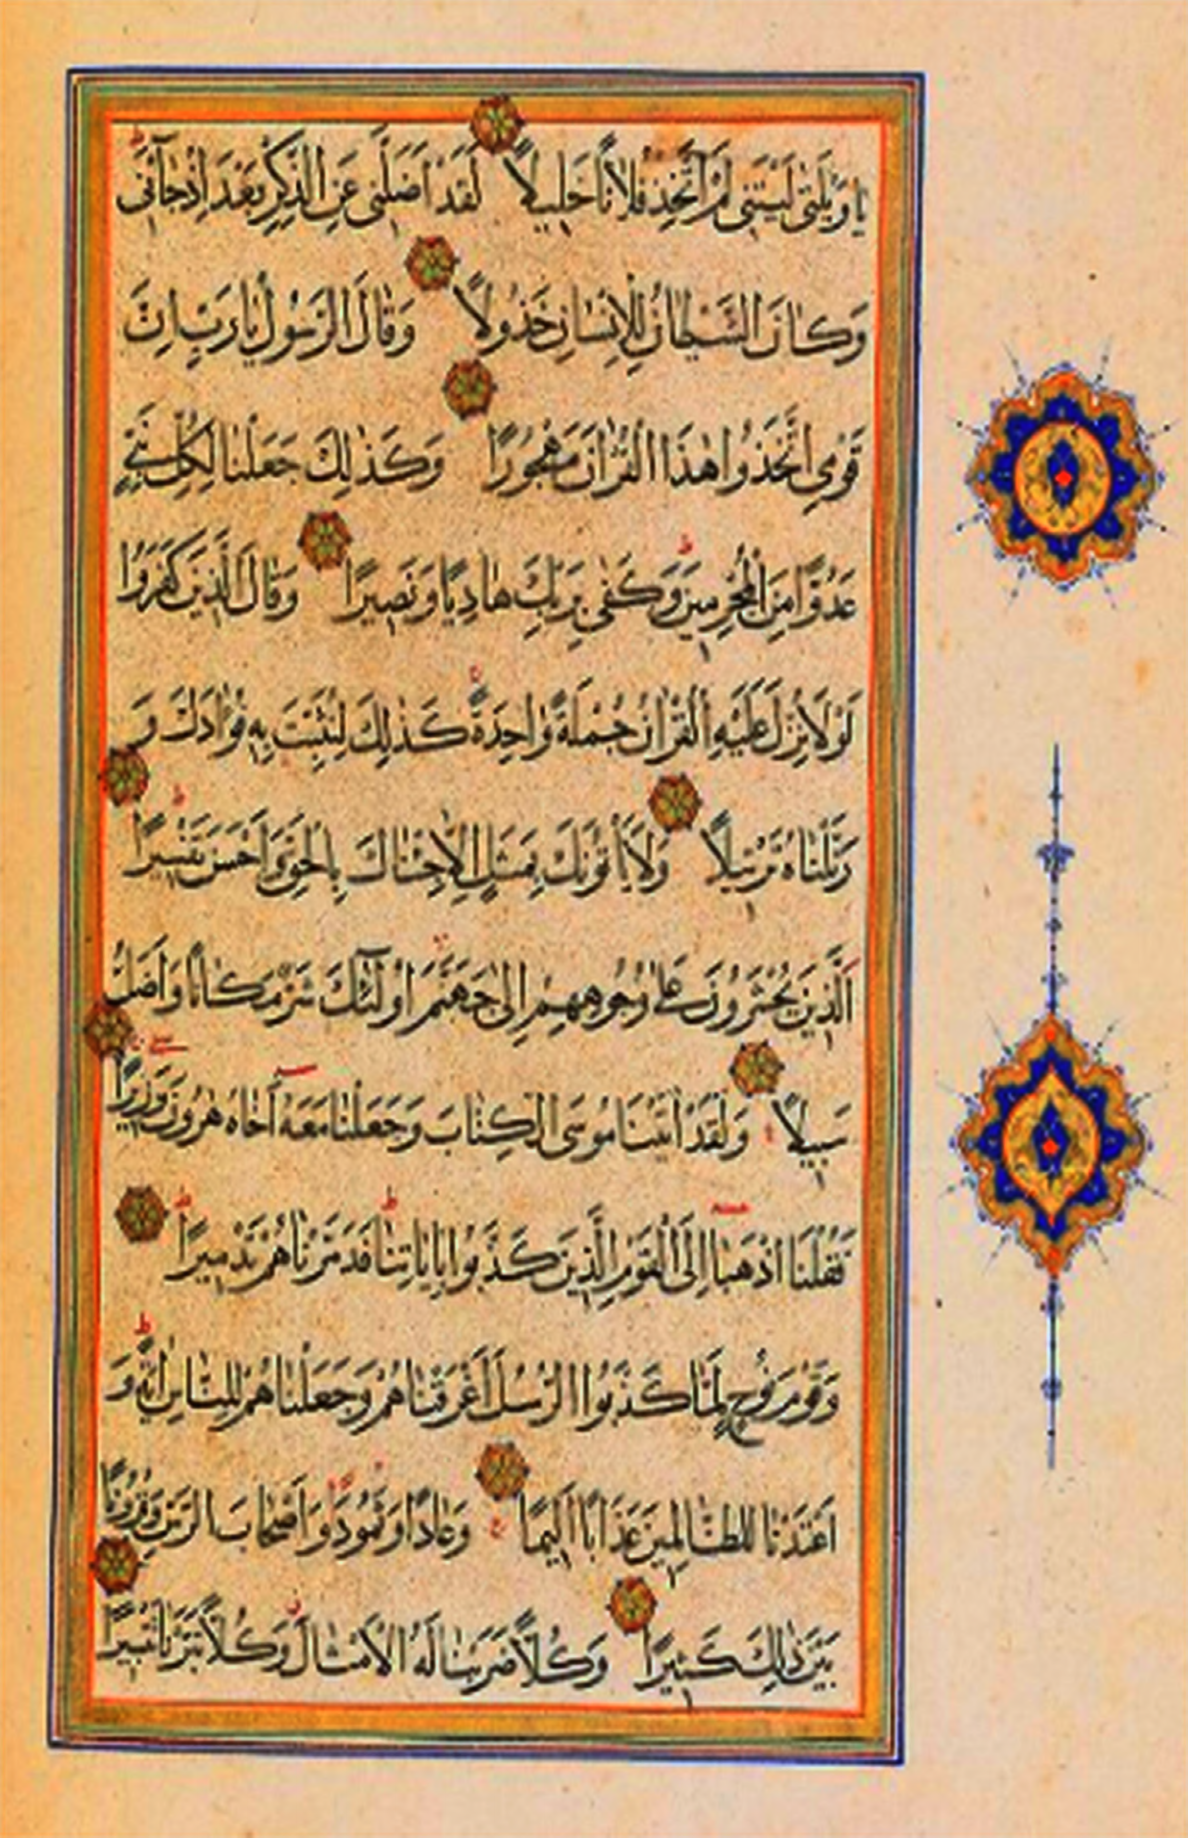 يَا وَيْلَتٰى لَيْتَنٖى لَمْ اَتَّخِذْ فُلَانًا خَلٖيلًا لَقَدْ اَضَلَّنٖى عَنِ الذِّكْرِ بَعْدَ اِذْ جَآءَنٖى
وَكَانَ الشَّيْطَانُ لِلْاِنْسَانِ خَذُولًا وَقَالَ الرَّسُولُ يَا رَبِّ اِنَّ
قَوْمِى اتَّخَذُوا هٰذَا الْقُرْاٰنَ مَهْجُورًا وَكَذٰلِكَ جَعَلْنَا لِكُلِّ نَبِىٍّ
عَدُوًّا مِنَ الْمُجْرِمٖينَ وَكَفٰى بِرَبِّكَ هَادِيًا وَنَصٖيرًا وَقَالَ الَّذٖينَ كَفَرُوا
لَوْلَا نُزِّلَ عَلَيْهِ الْقُرْاٰنُ جُمْلَةً وَاحِدَةً كَذٰلِكَ لِنُثَبِّتَ بِهٖ فُؤَادَكَ وَ
رَتَّلْنَاهُ تَرْتٖيلًا وَلَا يَاْتُونَكَ بِمَثَلٍ اِلَّا جِئْنَاكَ بِالْحَقِّ وَاَحْسَنَ تَفْسٖيرًا
اَلَّذٖينَ يُحْشَرُونَ عَلٰى وُجُوهِهِمْ اِلٰى جَهَنَّمَ اُولٰٓئِكَ شَرٌّ مَكَانًا وَاَضَلُّ
سَبٖيلًا وَلَقَدْ اٰتَيْنَا مُوسَى الْكِتَابَ وَجَعَلْنَا مَعَهُ اَخَاهُ هٰرُونَ وَزٖيرًا
فَقُلْنَا اذْهَبَا اِلَى الْقَوْمِ الَّذٖينَ كَذَّبُوا بِاٰيَاتِنَا فَدَمَّرْنَاهُمْ تَدْمٖيرًا
وَقَوْمَ نُوحٍ لَمَّا كَذَّبُوا الرُّسُلَ اَغْرَقْنَاهُمْ وَجَعَلْنَاهُمْ لِلنَّاسِ اٰيَةً وَ
اَعْتَدْنَا لِلظَّالِمٖينَ عَذَابًا اَلٖيمًا وَعَادًا وَثَمُودَا وَاَصْحَابَ الرَّسِّ وَقُرُونًا
بَيْنَ ذٰلِكَ كَثٖيرًا وَكُلًّا ضَرَبْنَا لَهُ الْاَمْثَالَ وَكُلًّا تَبَّرْنَا تَتْبٖيرًا